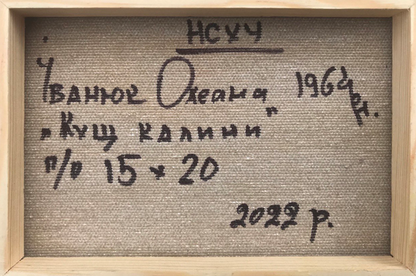 НСХУ
Іванюк Оксана 1964
„Кущ калини"
п/о 15 х 20
2022 р.